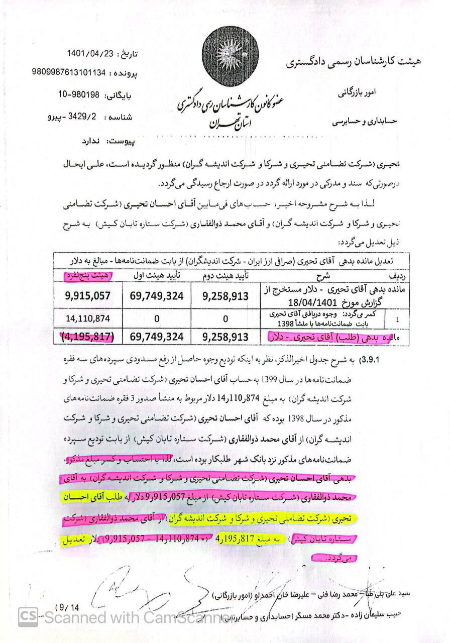 هیئت کارشناسان رسمی دادگستری
امور بازرگانی
حسابداری و حسابرسی
عضو کانون کارشناسان رسمی دادگستری
استان تهران
تاریخ: 1401/04/23
پرونده: 9809987613101134
بایگانی: 980198-10
شناسه: 3429/2- پیرو
پیوست: ندارد
نحیری (شرکت تضامنی نحیری و شرکا و شرکت اندیشه گران) منظور گردیده است، علی ایحال
درصورتی‌که سند و مدرکی در مورد ارائه گردد در صورت ارجاع رسیدگی می‌گردد.
لذا به شرح مشروحه اخیر، حساب‌های فی‌مابین آقای احسان نحیری (شرکت تضامنی
نحیری و شرکا و شرکت اندیشه گران) و آقای محمد ذوالفقاری (شرکت ستاره تابان کیش) به شرح
ذیل تعدیل می‌گردد:
تعدیل مانده بدهی آقای نحیری (صرافی ارز ایران - شرکت اندیشگران) از بابت ضمانت‌نامه‌ها - مبالغ به دلار
ردیف شرح تأیید هیئت دوم تأیید هیئت اول هیئت پنج‌نفره
مانده بدهی آقای نحیری - دلار مستخرج از گزارش مورخ 18/04/1401 9,258,913 69,749,324 9,915,057
1 کسر می‌گردد: وجوه دریافتی آقای نحیری بابت ضمانت‌نامه‌ها با منشأ 1398 0 0 14,110,874
مانده بدهی (طلب) آقای نحیری - دلار 9,258,913 69,749,324 (4,195,817)
3.9.1) به شرح جدول اخیرالذکر، نظر به اینکه تودیع وجوه حاصل از رفع مسدودی سپرده‌های سه فقره
ضمانت‌نامه‌ها در سال 1399 به حساب آقای احسان نحیری (شرکت تضامنی نحیری و شرکا و
شرکت اندیشه گران) به مبلغ 14٫110٫874 دلار مربوط به منشأ صدور 3 فقره ضمانت‌نامه‌های
مذکور در سال 1398 بوده که آقای احسان نحیری (شرکت تضامنی نحیری و شرکا و شرکت
اندیشه گران) از آقای محمد ذوالفقاری (شرکت ستاره تابان کیش) از بابت تودیع سپرده
ضمانت‌نامه‌های مذکور نزد بانک شهر طلبکار بوده است، لذا با احتساب و کسر مبلغ مذکور،
بدهی آقای احسان نحیری (شرکت تضامنی نحیری و شرکا و شرکت اندیشه گران) به آقای
محمد ذوالفقاری (شرکت ستاره تابان کیش) از مبلغ 9٫915٫057 دلار به طلب آقای احسان
نحیری (شرکت تضامنی نحیری و شرکا و شرکت اندیشه گران) از آقای محمد ذوالفقاری (شرکت
ستاره تابان کیش) به مبلغ 4٫195٫817 (14٫110٫874 - 9٫915٫057) دلار تعدیل
می‌گردد.
محمد رضا فنی - علیرضا خان احمدلو (امور بازرگانی)
حبیب سلیمان زاده - دکتر محمد مسگر (حسابداری و حسابرسی)
9/14
CS Scanned with CamScanner